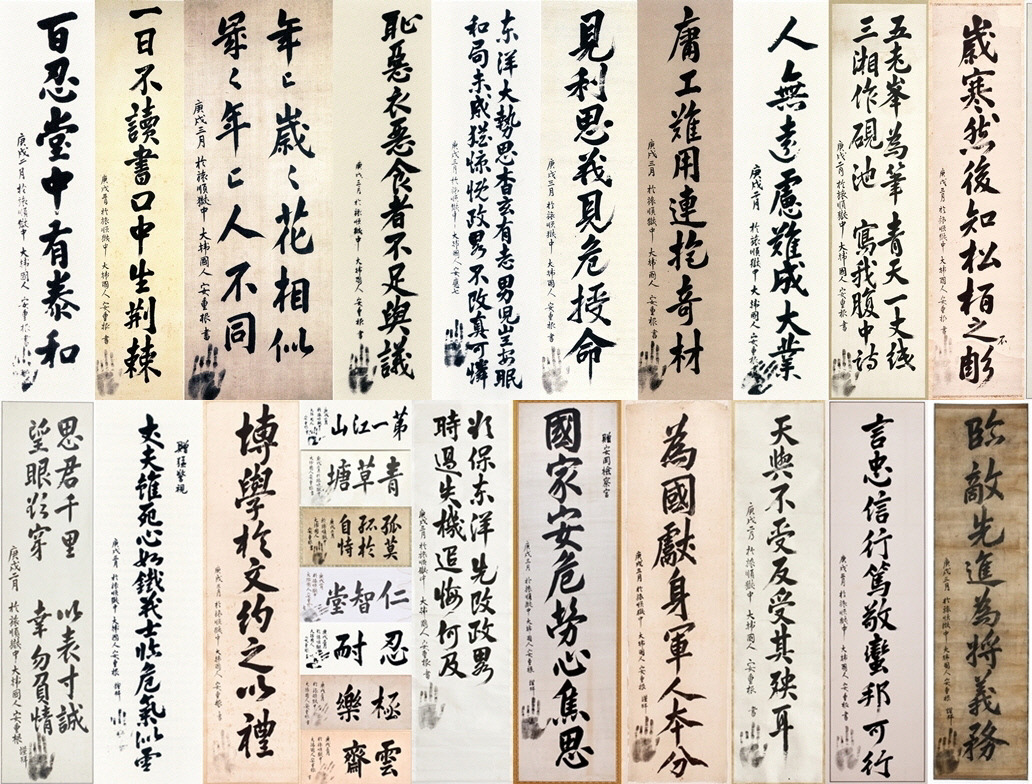 百忍堂中有泰和
庚戌二月 於旅順獄中 大韓國人 安重根 書
一日不讀書口中生荊棘
庚戌三月 於旅順獄中 大韓國人 安重根 書
年々歲々花相似
歲々年々人不同
庚戌三月 於旅順獄中 大韓國人 安重根 書
恥惡衣惡食者不足與議
庚戌三月 於旅順獄中 大韓國人 安重根 書
东洋大勢思杳玄有志男兒豈安眠
和局未成猶慷慨政畧不改真可憐
庚戌三月 於旅順獄中 大韓國人 安重根
見利思義見危授命
庚戌三月 於旅順獄中 大韓國人 安重根 書
庸工難用連抱奇材
庚戌三月 於旅順獄中 大韓國人 安重根 書
人無遠慮難成大業
庚戌二月 於旅順獄中 大韓國人 安重根 書
五老峯為筆 青天一丈紙
三湘作硯池 寫我腹中詩
庚戌二月 於旅順獄中 大韓國人 安重根 書
歲寒然後知松栢之不彫
庚戌三月 於旅順獄中 大韓國人 安重根 書
思君千里 以表寸誠
望眼欲穿 幸勿負情
庚戌二月 於旅順獄中 大韓國人 安重根 謹拜
贈猛警視
丈夫雖死心如鐵義士臨危氣似雲
庚戌三月 於旅順獄中 大韓國人 安重根 謹拜
博學於文約之以禮
庚戌三月 於旅順獄中 大韓國人 安重根 書
第一江山
青草塘
孤莫
孤於
自恃
仁智堂
忍耐
極樂
雲齋
欲保东洋先改政畧
時過失機追悔何及
庚戌三月 於旅順獄中 大韓國人 安重根 書
贈安岡檢察官
國家安危勞心焦思
庚戌三月 於旅順獄中 大韓國人 安重根 謹拜
為國獻身軍人本分
庚戌三月 於旅順獄中 大韓國人 安重根 謹拜
天與不受反受其殃耳
庚戌二月 於旅順獄中 大韓國人 安重根 書
言忠信行篤敬蠻邦可行
庚戌三月 於旅順獄中 大韓國人 安重根 書
臨敵先進為將義務
庚戌三月 於旅順獄中 大韓國人 安重根 謹拜